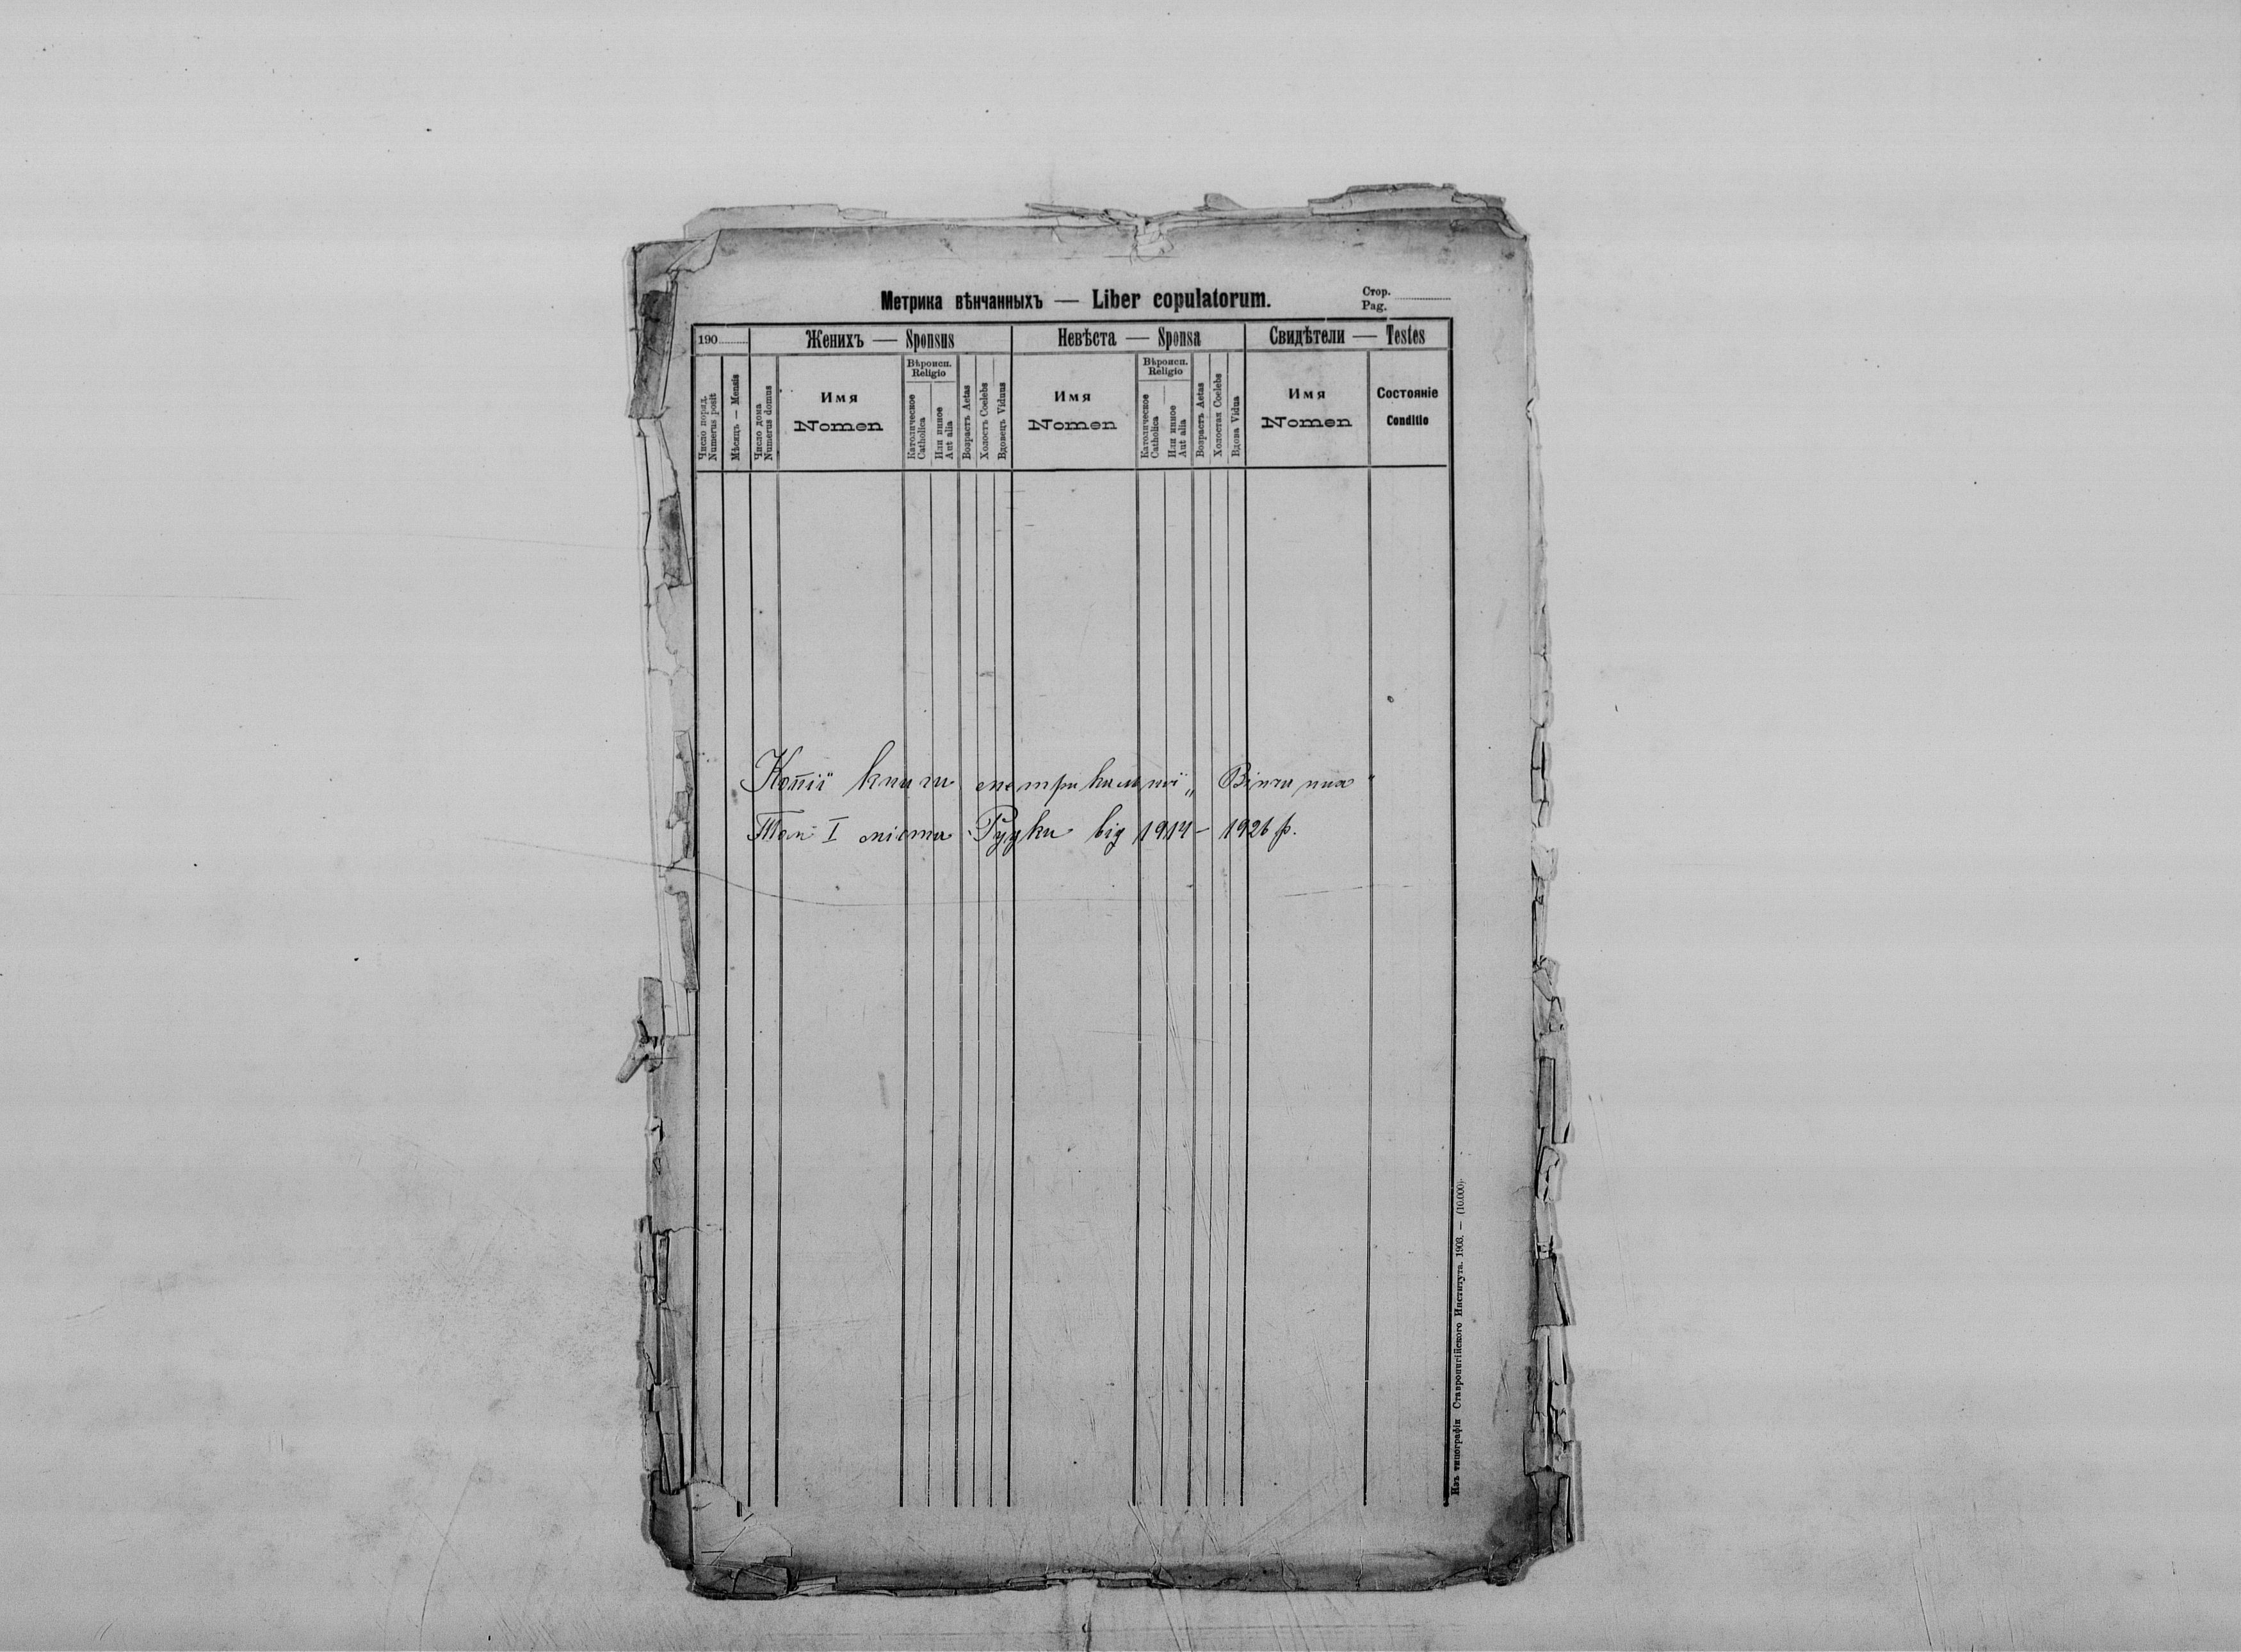 Метрика вѣнчанныхъ — Liber copulatorum.
Стор.
Pag.
190
Женихъ — Sponsus
Невѣста — Sponsa
Свидѣтели — Testes
Число поряд.
Numerus posit
Мѣсяцъ — Mensis
Число дома
Numerus domus
Имя
Nomen
Вѣроисп.
Religio
Католическое
Catholica
Или иное
Aut alia
Возрастъ Aetas
Холостъ Coelebs
Вдовецъ Viduus
Имя
Nomen
Вѣроисп.
Religio
Католическое
Catholica
Или иное
Aut alia
Возрастъ Aetas
Холостая Coelebs
Вдова Vidua
Имя
Nomen
Состояніе
Conditio
Копії книги метрикальної „Вінчання"
Том I міста Рудки від 1914 – 1926 р.
Изъ типографіи Ставропигійского Института. 1908. — (10.000).